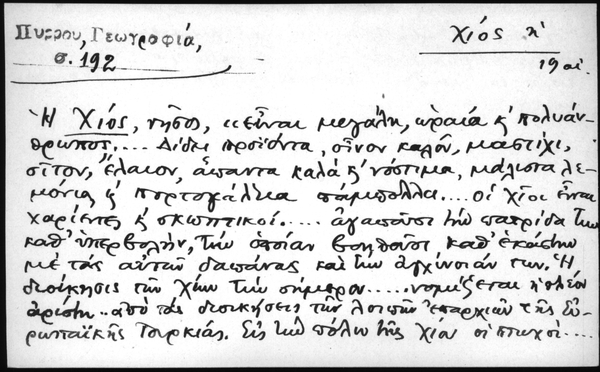 Πύρρου, Γεωγραφία,
σ. 192
Χίος ἡ
19 αἰ.
Ἡ Χίος, νῆσος, «εἶναι μεγάλη, ὡραία κ' πολυάν-
θρωπος.... Δίδει προϊόντα, οἶνον καλόν, μαστίχι,
σῖτον, ἔλαιον, ἅπαντα καλά κ' νόστιμα, μάλιστα λε-
μόνια κ' πορτογάλλια πάμπολλα.... οἱ Χῖοι εἶναι
χαρίεντες κ' σκωπτικοί.... ἀγαπῶσι τήν πατρίδα των
καθ' ὑπερβολήν, τήν ὁποίαν βοηθοῦσι καθ' ἑκάστην
μέ τάς αὐτῶν δαπάνας καί τήν ἀγχίνοιάν των. Ἡ
διοίκησις τῶν Χίων τήν σήμερον.... νομίζεται ἡ πλέον
ἀρίστη.. ἀπό τάς διοικήσεις τῶν λοιπῶν ἐπαρχιῶν τῆς Εὐ-
ρωπαϊκῆς Τουρκίας. Εἰς τήν πόλιν τῆς Χίου οἱ πτωχοί....